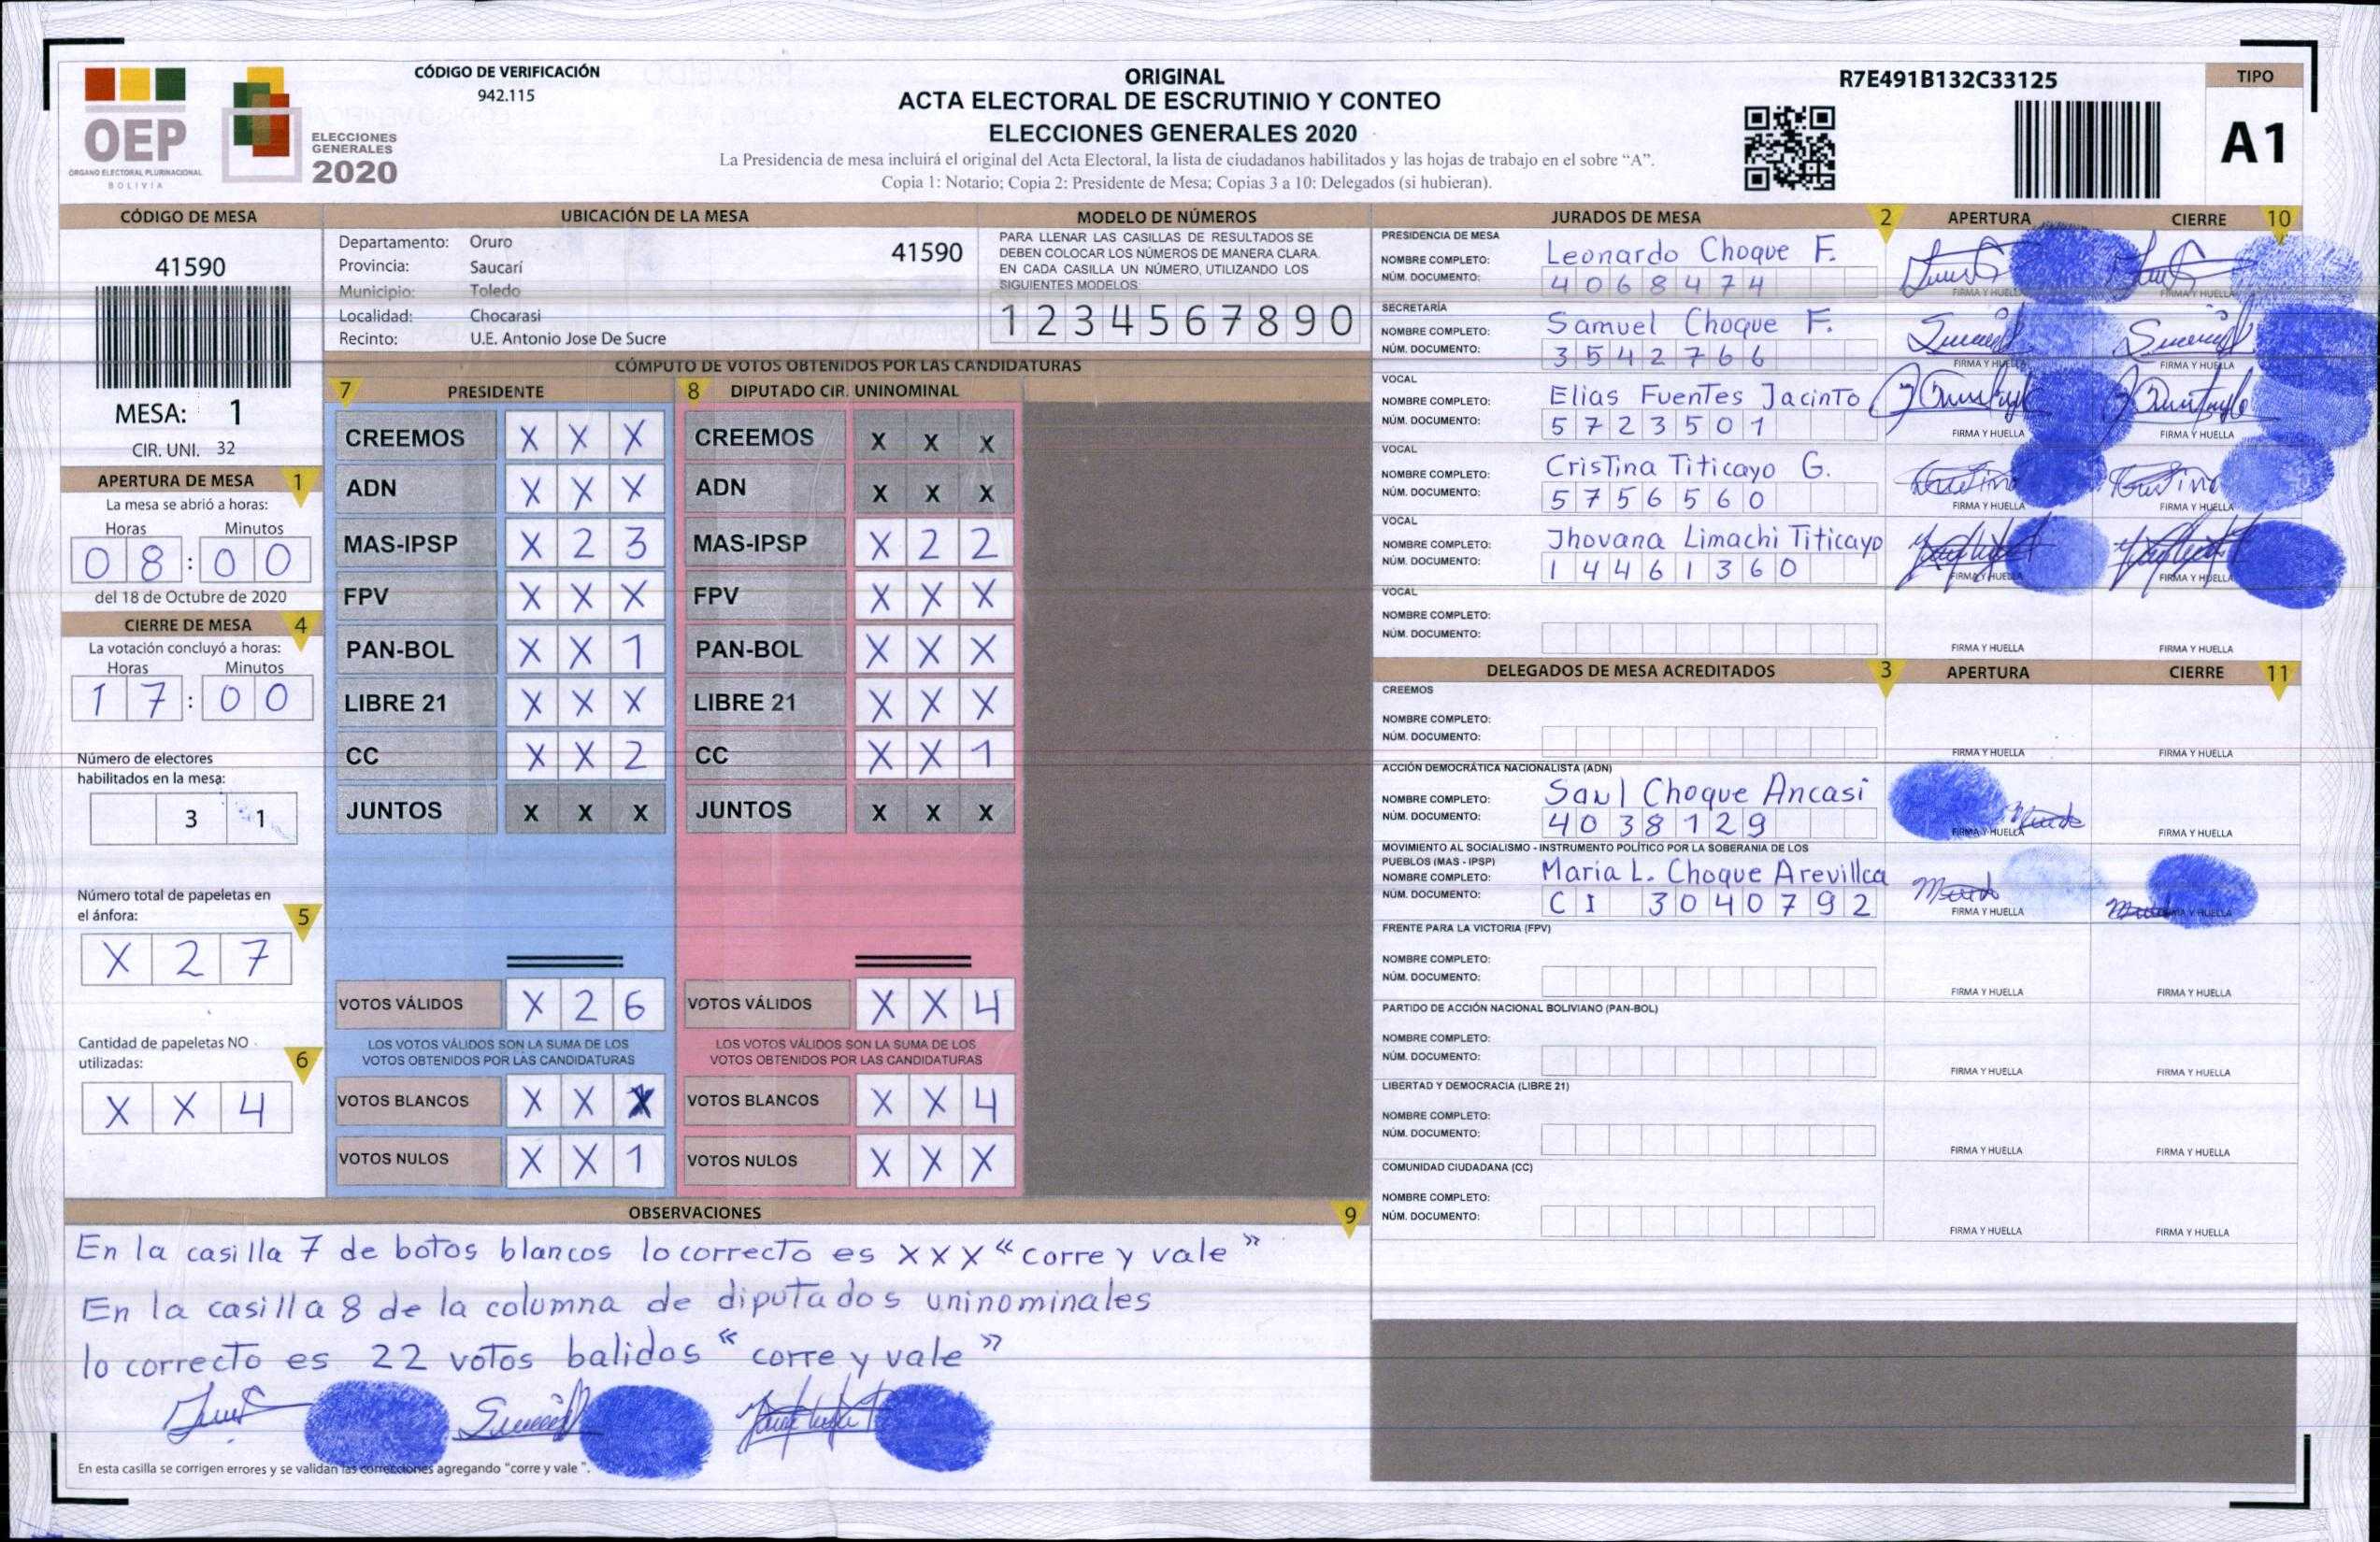 CÓDIGO DE VERIFICACIÓN
942.115
OEP
ÓRGANO ELECTORAL PLURINACIONAL
BOLIVIA
ELECCIONES
GENERALES
2020
ORIGINAL
ACTA ELECTORAL DE ESCRUTINIO Y CONTEO
ELECCIONES GENERALES 2020
La Presidencia de mesa incluirá el original del Acta Electoral, la lista de ciudadanos habilitados y las hojas de trabajo en el sobre “A”.
Copia 1: Notario; Copia 2: Presidente de Mesa; Copias 3 a 10: Delegados (si hubieran).
R7E491B132C33125
TIPO
A1
CÓDIGO DE MESA
41590
MESA: 1
CIR. UNI. 32
APERTURA DE MESA 1
La mesa se abrió a horas:
Horas Minutos
0 8 : 0 0
del 18 de Octubre de 2020
CIERRE DE MESA 4
La votación concluyó a horas:
Horas Minutos
1 7 : 0 0
Número de electores
habilitados en la mesa:
3 1
Número total de papeletas en
el ánfora: 5
X 2 7
Cantidad de papeletas NO
utilizadas: 6
X X 4
UBICACIÓN DE LA MESA
Departamento: Oruro 41590
Provincia: Saucarí
Municipio: Toledo
Localidad: Chocarasi
Recinto: U.E. Antonio Jose De Sucre
MODELO DE NÚMEROS
PARA LLENAR LAS CASILLAS DE RESULTADOS SE
DEBEN COLOCAR LOS NÚMEROS DE MANERA CLARA.
EN CADA CASILLA UN NÚMERO, UTILIZANDO LOS
SIGUIENTES MODELOS
1 2 3 4 5 6 7 8 9 0
CÓMPUTO DE VOTOS OBTENIDOS POR LAS CANDIDATURAS
7 PRESIDENTE 8 DIPUTADO CIR. UNINOMINAL
CREEMOS X X X CREEMOS X X X
ADN X X X ADN X X X
MAS-IPSP X 2 3 MAS-IPSP X 2 2
FPV X X X FPV X X X
PAN-BOL X X 1 PAN-BOL X X X
LIBRE 21 X X X LIBRE 21 X X X
CC X X 2 CC X X 1
JUNTOS X X X JUNTOS X X X
VOTOS VÁLIDOS X 2 6 VOTOS VÁLIDOS X X 4
LOS VOTOS VÁLIDOS SON LA SUMA DE LOS LOS VOTOS VÁLIDOS SON LA SUMA DE LOS
VOTOS OBTENIDOS POR LAS CANDIDATURAS VOTOS OBTENIDOS POR LAS CANDIDATURAS
VOTOS BLANCOS X X X VOTOS BLANCOS X X 4
VOTOS NULOS X X 1 VOTOS NULOS X X X
OBSERVACIONES 9
En la casilla 7 de botos blancos lo correcto es XXX “corre y vale”
En la casilla 8 de la columna de diputados uninominales
lo correcto es 22 votos balidos “corre y vale”
En esta casilla se corrigen errores y se validan las correcciones agregando “corre y vale”.
JURADOS DE MESA 2 APERTURA CIERRE 10
PRESIDENCIA DE MESA
NOMBRE COMPLETO: Leonardo Choque F.
NÚM. DOCUMENTO: 4068474
FIRMA Y HUELLA FIRMA Y HUELLA
SECRETARÍA
NOMBRE COMPLETO: Samuel Choque F.
NÚM. DOCUMENTO: 3542766
FIRMA Y HUELLA FIRMA Y HUELLA
VOCAL
NOMBRE COMPLETO: Elias Fuentes Jacinto
NÚM. DOCUMENTO: 5723501
FIRMA Y HUELLA FIRMA Y HUELLA
VOCAL
NOMBRE COMPLETO: Cristina Titicayo G.
NÚM. DOCUMENTO: 5756560
FIRMA Y HUELLA FIRMA Y HUELLA
VOCAL
NOMBRE COMPLETO: Jhovana Limachi Titicayo
NÚM. DOCUMENTO: 14461360
FIRMA Y HUELLA FIRMA Y HUELLA
VOCAL
NOMBRE COMPLETO:
NÚM. DOCUMENTO:
FIRMA Y HUELLA FIRMA Y HUELLA
DELEGADOS DE MESA ACREDITADOS 3 APERTURA CIERRE 11
CREEMOS
NOMBRE COMPLETO:
NÚM. DOCUMENTO:
FIRMA Y HUELLA FIRMA Y HUELLA
ACCIÓN DEMOCRÁTICA NACIONALISTA (ADN)
NOMBRE COMPLETO: Saul Choque Ancasi
NÚM. DOCUMENTO: 4038129
FIRMA Y HUELLA FIRMA Y HUELLA
MOVIMIENTO AL SOCIALISMO - INSTRUMENTO POLÍTICO POR LA SOBERANIA DE LOS
PUEBLOS (MAS - IPSP)
NOMBRE COMPLETO: Maria L. Choque Arevillca
NÚM. DOCUMENTO: CI 3040792
FIRMA Y HUELLA FIRMA Y HUELLA
FRENTE PARA LA VICTORIA (FPV)
NOMBRE COMPLETO:
NÚM. DOCUMENTO:
FIRMA Y HUELLA FIRMA Y HUELLA
PARTIDO DE ACCIÓN NACIONAL BOLIVIANO (PAN-BOL)
NOMBRE COMPLETO:
NÚM. DOCUMENTO:
FIRMA Y HUELLA FIRMA Y HUELLA
LIBERTAD Y DEMOCRACIA (LIBRE 21)
NOMBRE COMPLETO:
NÚM. DOCUMENTO:
FIRMA Y HUELLA FIRMA Y HUELLA
COMUNIDAD CIUDADANA (CC)
NOMBRE COMPLETO:
NÚM. DOCUMENTO:
FIRMA Y HUELLA FIRMA Y HUELLA